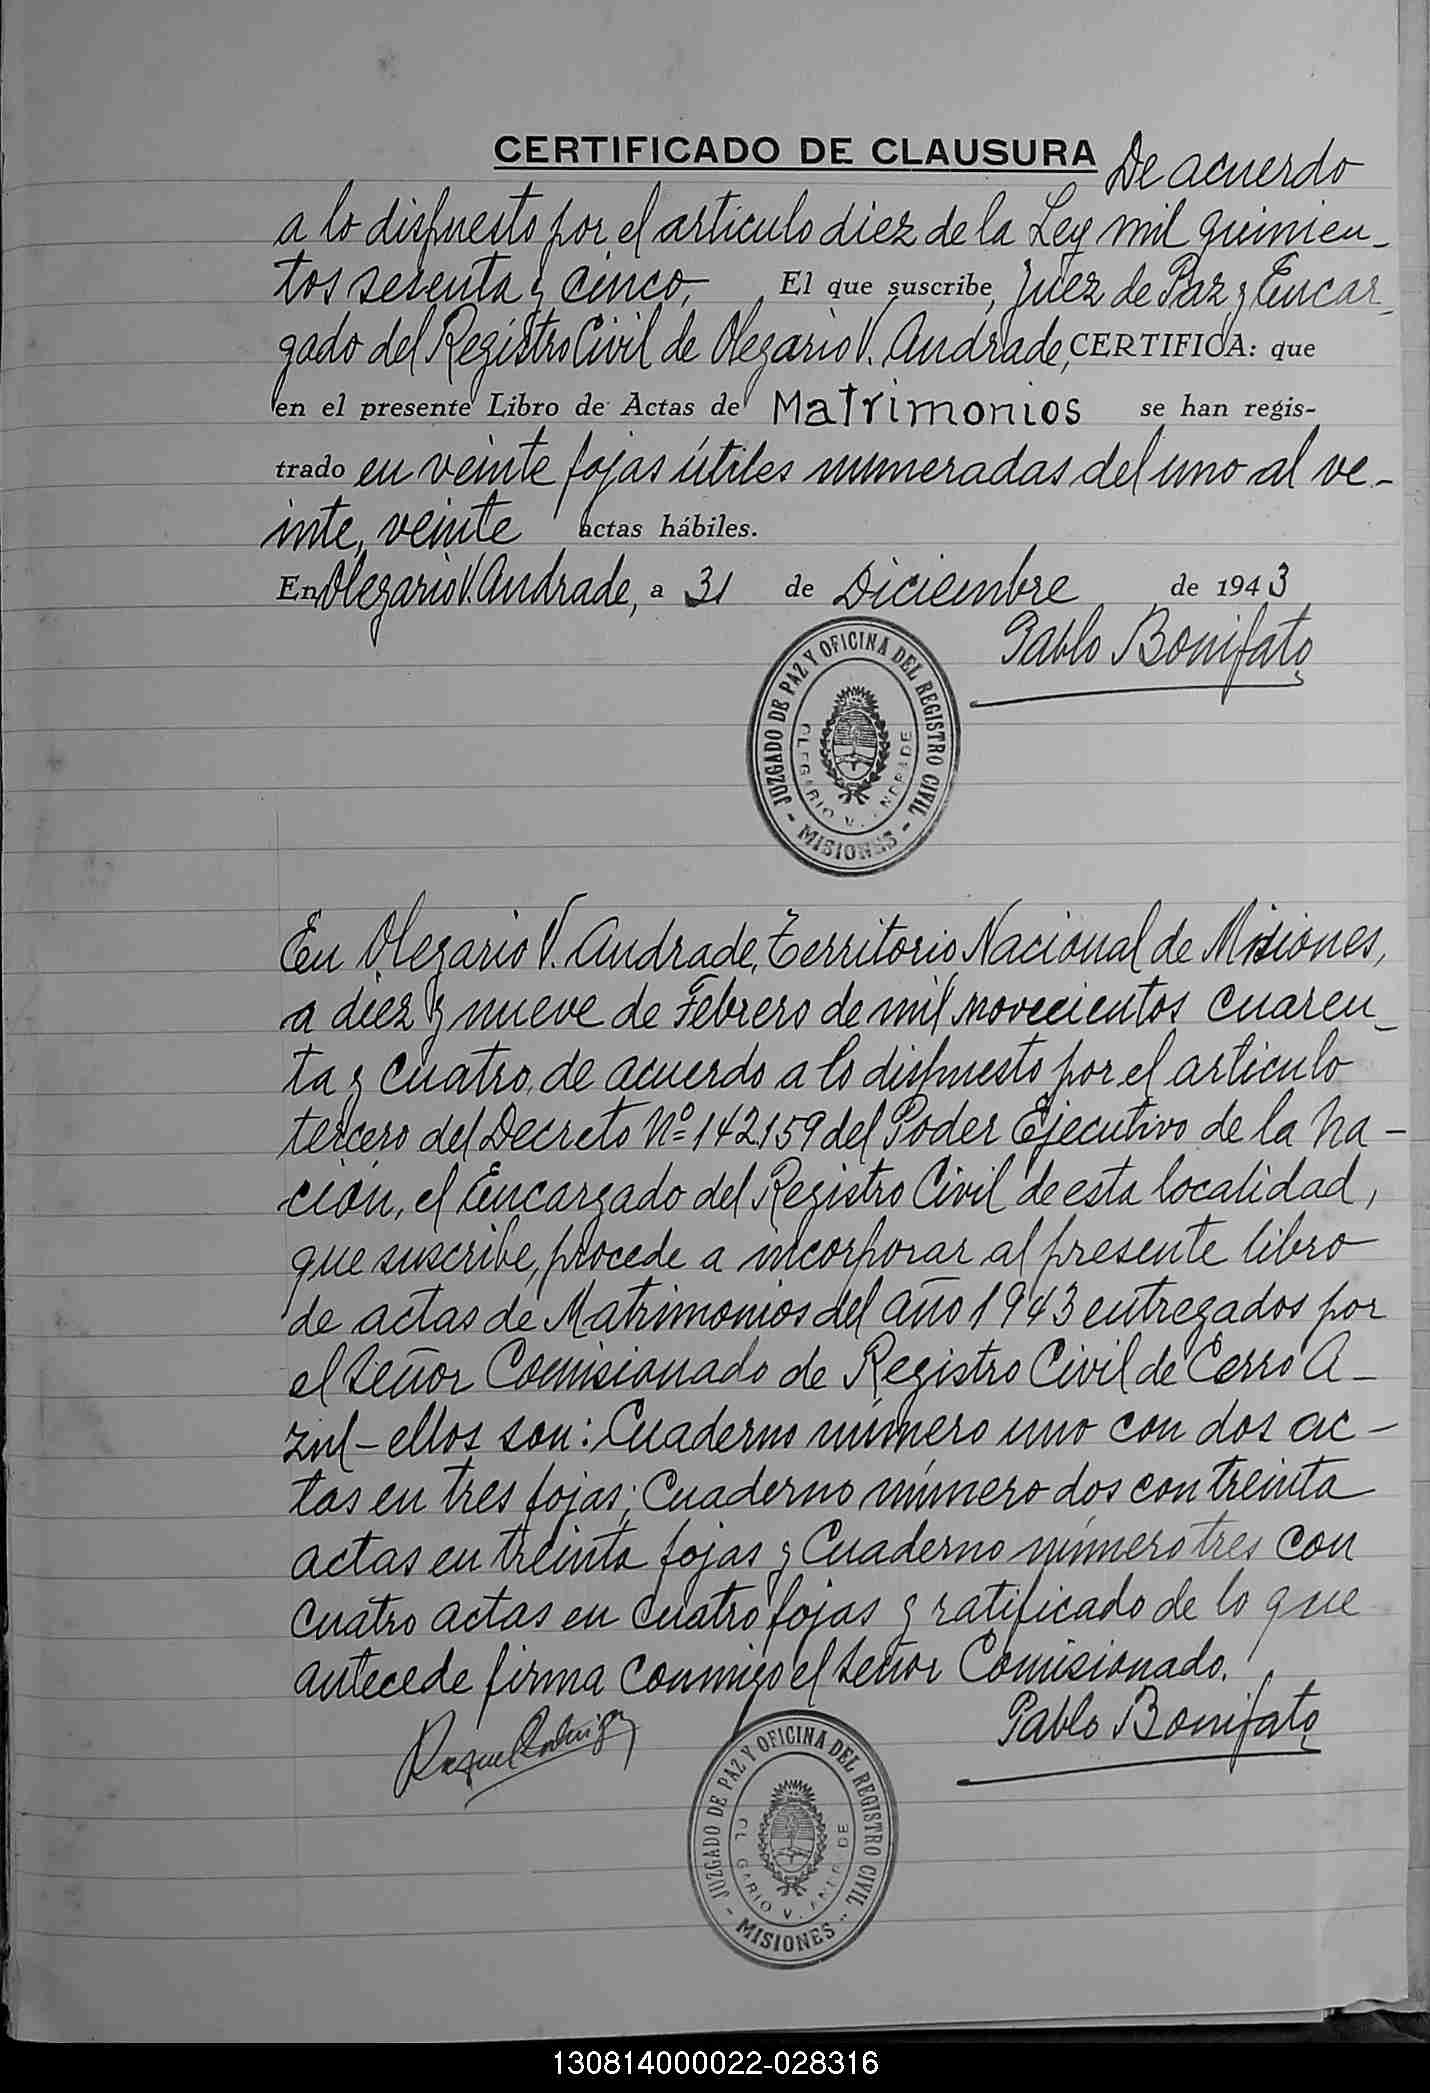 CERTIFICADO DE CLAUSURA De acuerdo
a lo dispuesto por el artículo diez de la Ley mil quinien-
tos sesenta y cinco, El que suscribe, Juez de Paz y Encar-
gado del Registro Civil de Olegario V. Andrade, CERTIFICA: que
en el presente Libro de Actas de Matrimonios se han regis-
trado en veinte fojas útiles numeradas del uno al ve-
inte, veinte actas hábiles.
En Olegario V. Andrade, a 31 de Diciembre de 1943
Pablo Bonifato
JUZGADO DE PAZ Y OFICINA DEL REGISTRO CIVIL
OLEGARIO V. ANDRADE
- MISIONES -
En Olegario V. Andrade, Territorio Nacional de Misiones,
a diez y nueve de Febrero de mil novecientos cuaren-
ta y cuatro, de acuerdo a lo dispuesto por el artículo
tercero del Decreto Nº 142.159 del Poder Ejecutivo de la Na-
ción, el Encargado del Registro Civil de esta localidad,
que suscribe, procede a incorporar al presente libro
de actas de Matrimonios del año 1943 entregados por
el señor Comisionado de Registro Civil de Cerro A-
zul - ellos son: Cuaderno número uno con dos ac-
tas en tres fojas; Cuaderno número dos con treinta
actas en treinta fojas y Cuaderno número tres con
cuatro actas en cuatro fojas y ratificado de lo que
antecede firma conmigo el señor Comisionado.
Pablo Bonifato
JUZGADO DE PAZ Y OFICINA DEL REGISTRO CIVIL
OLEGARIO V. ANDRADE
- MISIONES -
130814000022-028316